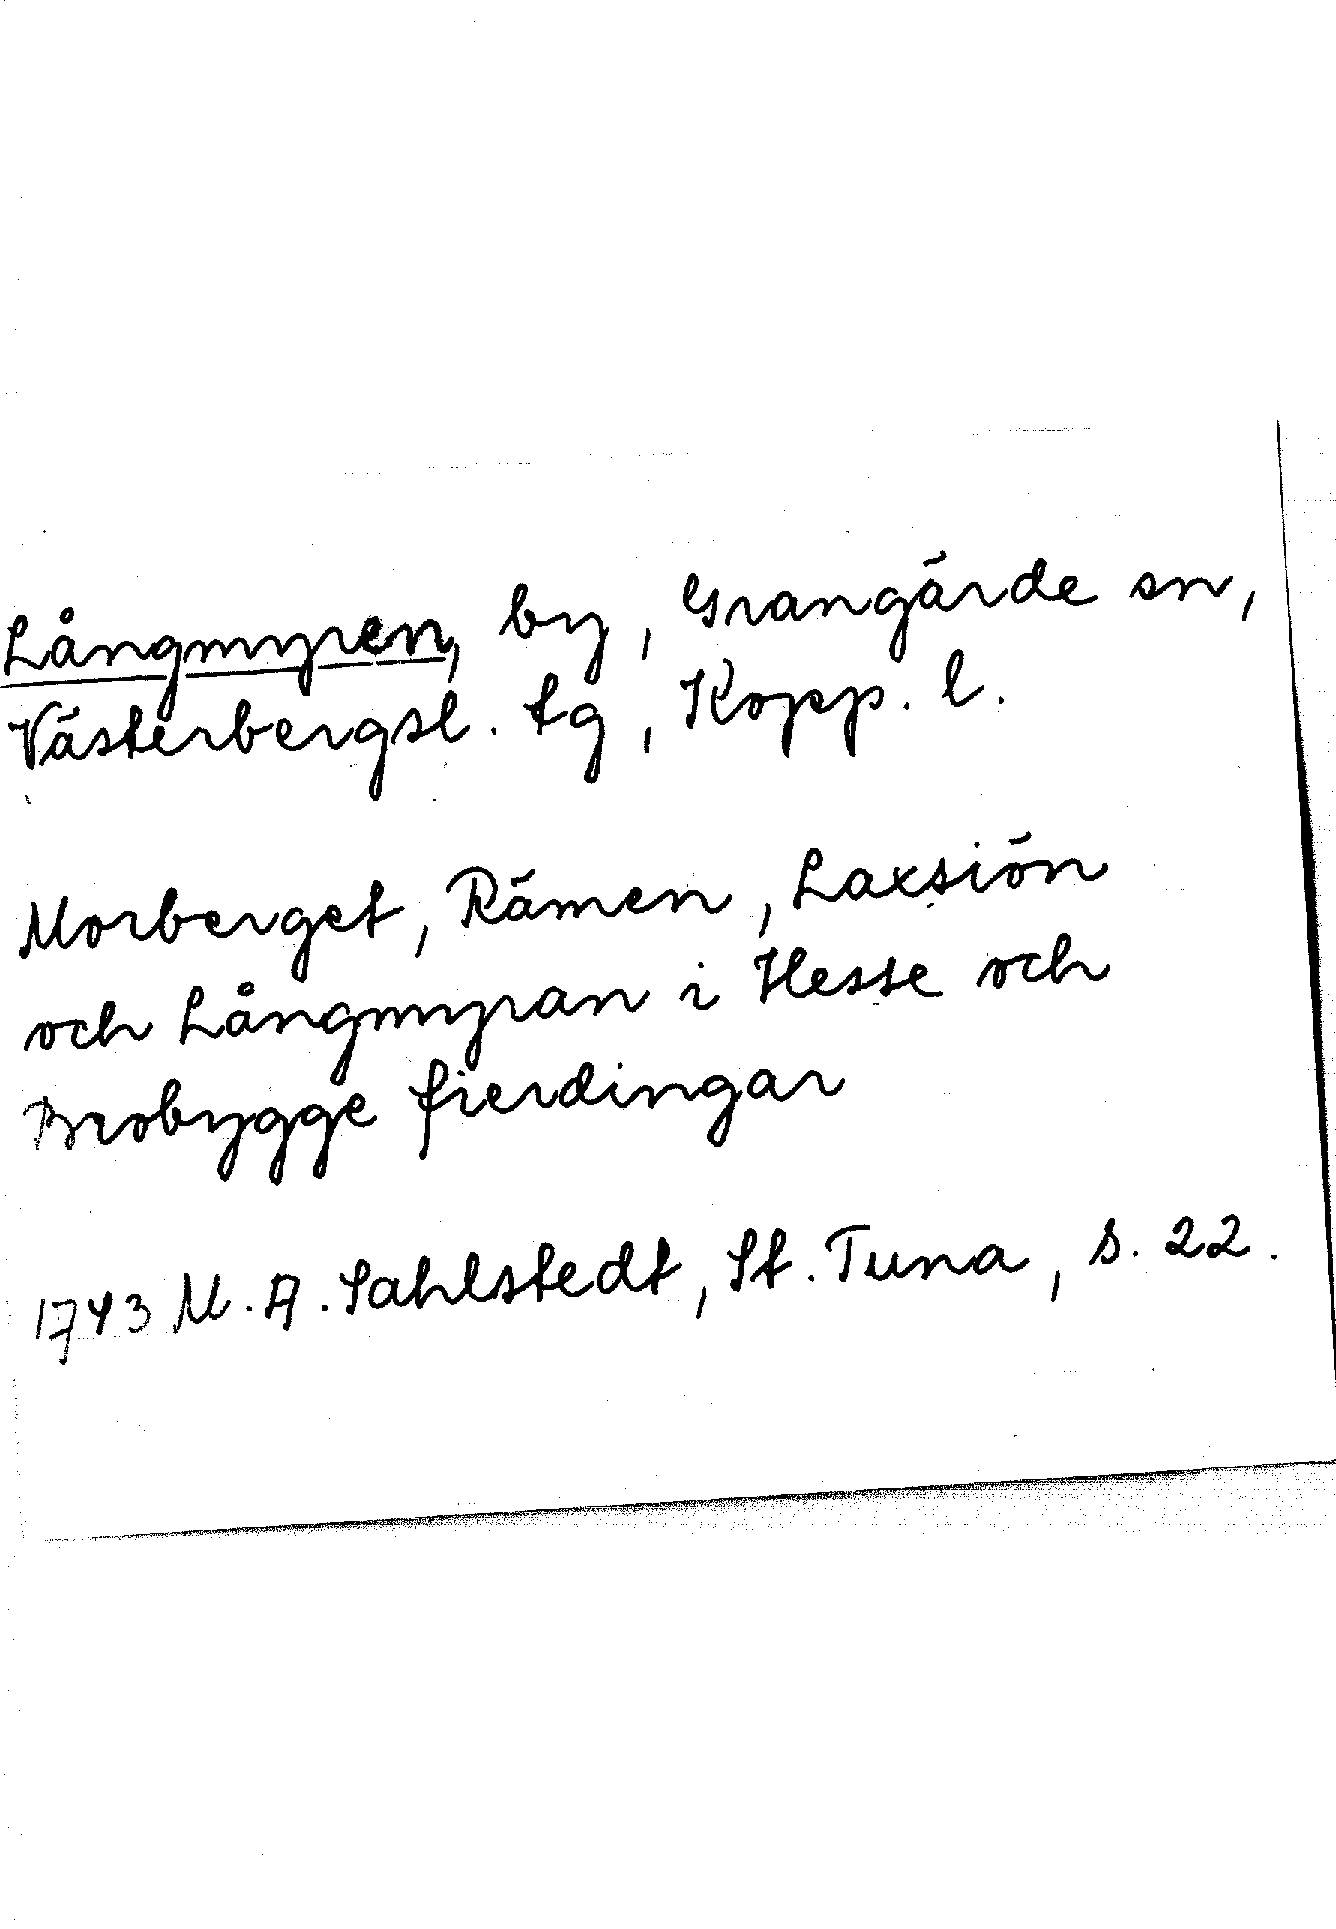 Långmyren, by, Grangärde sn,
Västerbergsl. tg, Kopp. l.
Morberget, Rämen, Laxsiön
och Långmyran i Hesse och
Brobygge fierdingar
1743 M. A. Sahlstedt, St. Tuna, s. 22.